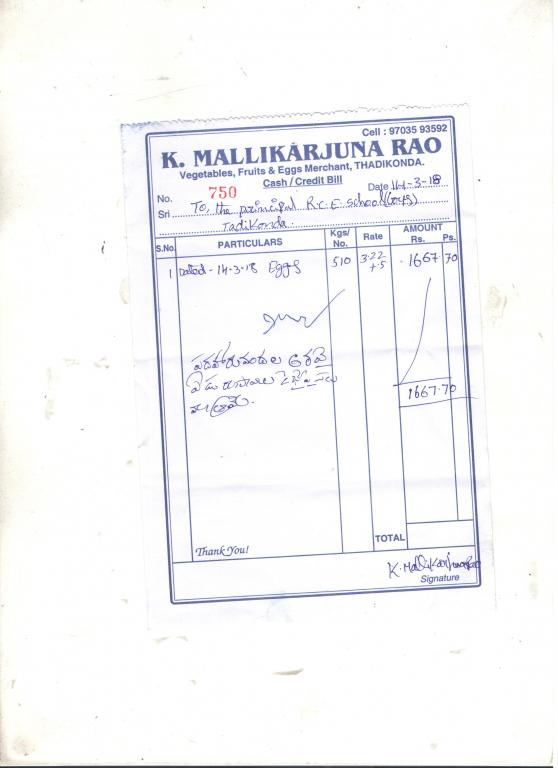 Cell : 97035 93592
K. MALLIKARJUNA RAO
Vegetables, Fruits & Eggs Merchant, THADIKONDA.
Cash / Credit Bill
No. 750 Date 14-3-18
Sri To, the principal R.C.E. school (Boys)
Tadikonda
S.No. PARTICULARS Kgs/ No. Rate AMOUNT Rs. Ps.
1 Dated - 14-3-18 Eggs 510 3.22 +5 1667 70
పదహారువందల అరవై
ఏడు రూపాయల డెబ్బై పైసలు
మాత్రమే.
1667.70
TOTAL
Thank You!
K. Mallikarjuna Rao
Signature